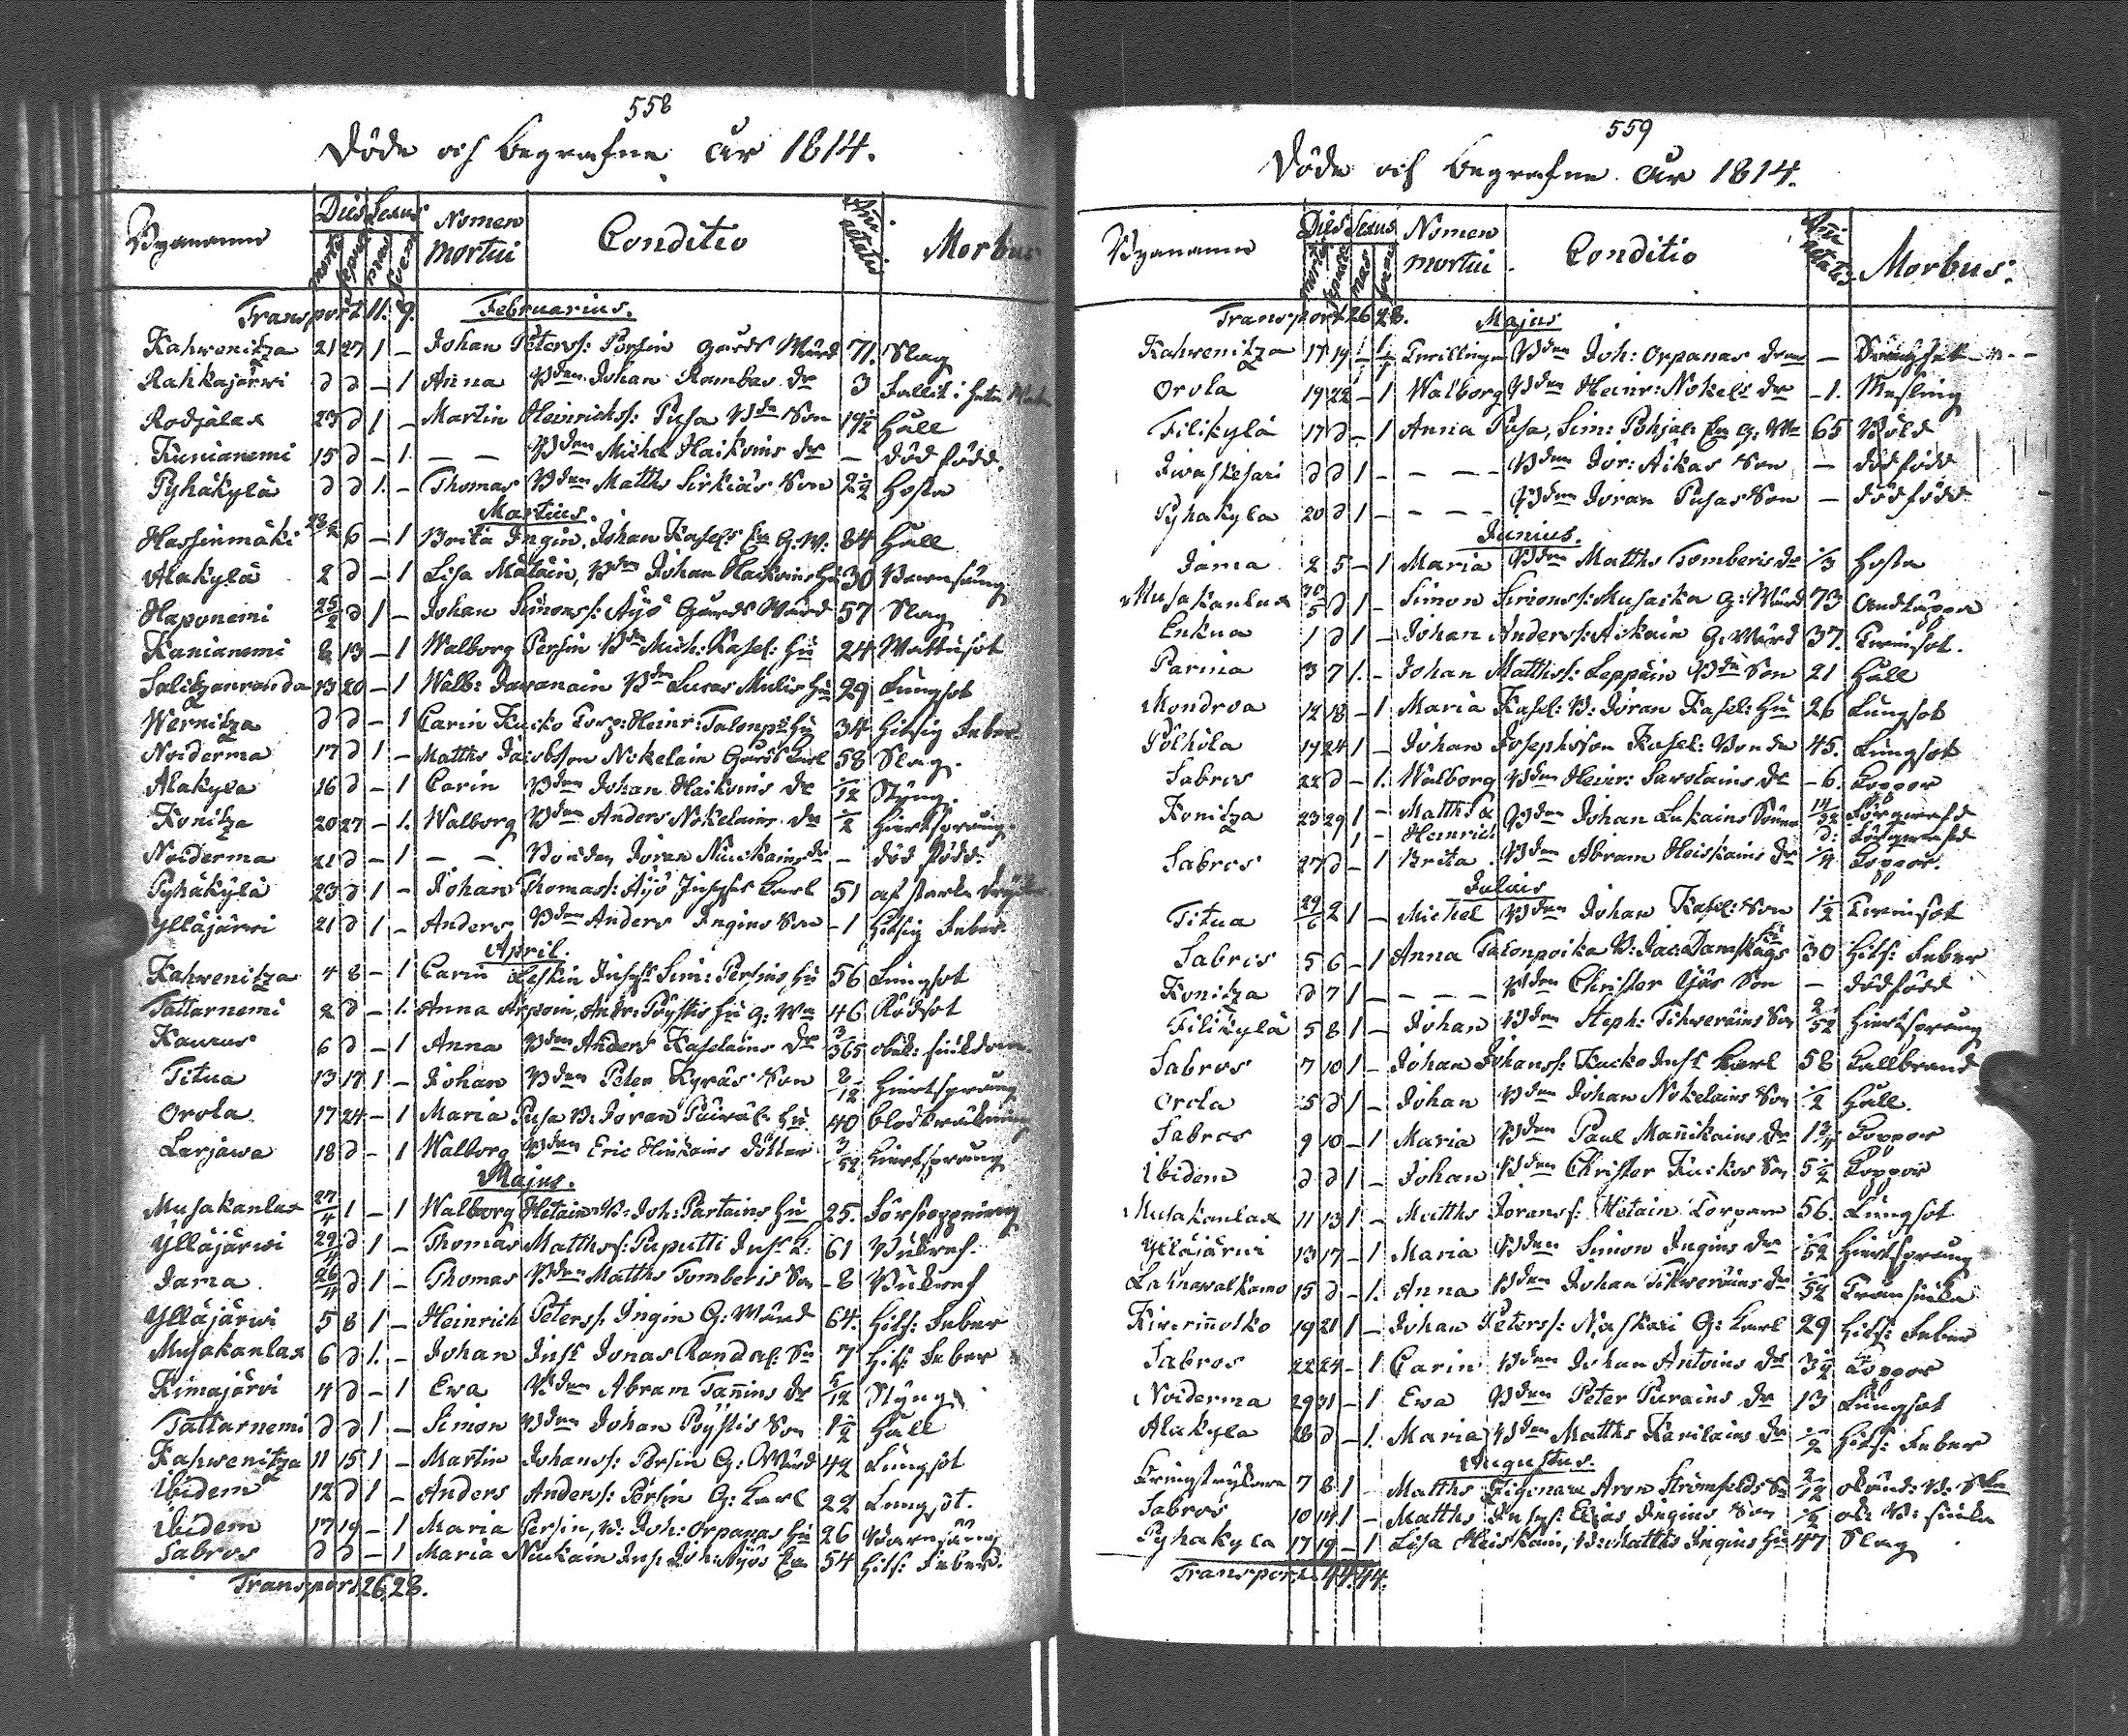 558
Döde och begrafne År 1814.
Bynamn Dies Sexus Nomen mortui Conditio Anni ætatis Morbus
Transport 11. 9. Februarius.
Kahwenitza 21 27 1 – Johan Peters: Persin Gårds Wärd 71. Slag
Rahkajärwi d d – 1 Anna Bden Johan Rombas dr 3
Rodjalax 23 d 1 – Martin Heinrichs: Pusa Bde Son 19½ Håll
Kunianemi 15 d – 1. – – Bden Michel Haikoins dr – död född.
Pyhäkylä d d 1. – Thomas Bden Matths Sirkiäs Son 2½ Hosta
Martius.
Hassinmäki 28/2 6 – 1 Brita Ingin, Johan Kasel: Ea G: W: 84 Håll
Alakylä 2 d – 1 Lisa Mätäin, Bden Johan Haikoins Hu 30 Barnsäng
Haponemi 25/2 d 1 – Johan Simons: Äyö Gårds Wärd 57 Slag
Kanianemi 8 13 – 1 Walborg Persin Bde Mich: Kasel: Hu 24 Wattusot
Salitzanranda 13 20 – 1 Walb: Jawanain Bde Lucas Mulis Hu 29 Lungsot
Wernitza d d – 1 Carin Kucko Torp: Heinr: Talonps Hu 34 Hitsig Feber
Noiderma 17 d 1 – Matths Jacobsson Nokelain Gårds Karl 58 Slag.
Alakyla 16 d – 1 Carin Bden Johan Haikoins dr 1/12 Styng.
Konitza 20 27 – 1. Walborg Bden Anders Nokelains dr ½ Hiertsprång.
Noiderma 21 d – 1 – – Bonden Jöran Nuckains dr – död född
Pyhäkylä 23 d 1 – Johan Thomas: Äyö Inhyses Karl 51 af starka
Ylläjärwi 21 d 1 – Anders Bden Anders Ingins Son – 1 Hitsig Feber
April.
Kahwenitza 4 8 – 1 Carin Leskin Inhyss Sim: Persins Hu 56 Lungsot
Tattarnemi 2 d – 1. Anna Arpoin, Andr: Pöystis Hu G: Wa 46 Rödsot
Kaurus 6 d – 1 Anna Bden Anders Kaselains dr 3/365 obek: siukdom.
Titua 13 17 1 – Johan Bden Peter Kyräs Son 2/12 Hiertsprång
Orola 17 24 – 1 Maria Pusa B: Jöran Hu 40 blodkräkning
Larjawa 18 d – 1 Walborg Bden Eric Hinkains dotter 3/52 Hiertsprång
Majus.
Musakanlax 27/4 1 – 1 Walborg Hetain B: Joh: Partains Hu 25. Förstoppning
Ylläjärwi 29/4 d 1 – Thomas Matths: Puputti Inhs K: 61 Bukref.
Jama 26/4 d 1 – Thomas Bden Matths Tomberis Son – 8 Bukref
Ylläjärwi 5 8 1 – Heinrich Peters: Ingin G: Wärd 64. Hits: Feber
Musakanlax 6 d 1. – Johan Inhs Jonas Son 7 Hits: Feber
Kimajärvi 4 d – 1 Ewa Bden Abram Tanins dr 5/12 Styng
Tattarnemi d d 1 – Simon Bden Johan Pöystis Son 1½ Håll
Kahwenitza 11 15 1 – Martin Johans: Persin G: Wärd 42 Lungsot
Ibidem 12 d 1 – Anders Anders: Persin G: Karl 22 Lungsot.
Ibidem 17 19 – 1 Maria Persin, B: Joh: Orpanas Hu 26 Barnsäng
Sabros d d – 1 Maria Nuckain Inh: Joh: Äyös Ea 54 Hits: Feber.
Transport 26. 28.
559
Döde och begrafne År 1814.
Bynamn Dies Sexus Nomen mortui. Conditio Anni ætatis Morbus.
Transport 26. 28. Majus
Kahwenitza 17 19 Twillingar Bden Joh: Orpanas –
Orola 19 22 – 1 Walborg Bden Heinr: Nokels dr – 1. Mesling
Filikylä 17 d – 1 Anna Pusa, Sim: Pohjal: Ea G: Wa 65 Böld
Iwaskesari d d 1 – – – – Bden Jör: Äikäs Son – dödfödd
Pyhakyla 20 d 1 – – – – Bden Jöran Pusas Son – dödfödd
Junius.
Jama 2 5 – 1 Maria Bden Matths Tomberis dr 1/3 Hosta
Musakanlax 30/5 d 1 – Simon Simons: Musacka G: Wärd 73 Andtäppa
Enkua 1 d 1 – Johan Anders: Äikäin G: Wärd 37. Twinsot.
Parina 3 7 1. – Johan Matths: Leppäin Bde Son 21 Håll
Mondroa 12 18 – 1 Maria Kasel: B: Jöran Kasel: Hu 26 Lungsot
Pölhölä 17 24 1 – Johan Josephsson Kasel: Bonde 45. Lungsot
Sabros 22 d – 1. Walborg Bden Heinr: Sawolains dr – 6. Koppor
Konitza 23 29 1 – Matths & Bden Johan Lukains Söner 14/52
1 – Heinrich d:
Sabros 27 d – 1 Brita Bden Abram Heiskains dr ¼ Koppor.
Julius
Titua 29/6 2 1 – Michel Bden Johan Kasel: Son 1½ Twinsot
Sabros 5 6 – 1 Anna Talonpoika B: Jac: Damskägs Hu 30 Hits: Feber
Konitza d 7 1 – – – – Bden Christer Son – dödfödd
Filikylä 5 8 1 – Johan Bden Steph: Tihweräins Son 2/52 Hiertsprång
Sabros 7 10 1 – Johan Johans: Kucko Inhs Karl 58 Kallbrand
Orola 5 d 1 – Johan Bden Johan Nokelains Son ½ Håll.
Sabros 9 10 – 1 Maria Bden Paul Mannikains dr 1¾ Koppor
Ibidem d d 1 – Johan Bden Christer Kuckos Son 5½ Koppor
Musakanlax 11 13 1 – Matths Jörans: Hetain Torpare 56. Lungsot
Ylläjärwi 13 17 – 1 Maria Bden Simon Ingins dr 1/52 Hiertsprång
Lahnawalkamo 15 d – 1. Anna Bden Johan Tikweräins dr 1/52
Kiwerinotko 19 21 1 – Johan Peters: Naskari G: Karl 29 Hits: Feber
Sabros 22 24 – 1 Carin Bden Johan Antoins dr 3½ Koppor
Noiderma 29 31 – 1 Ewa Bden Peter Purains dr 13 Lungsot
Alakyla 28 d – 1. Maria Bden Matths Karilains dr ½ Hits: Feber
Augustus.
7 8 1 – Matths Aron Strömfelds Son 2/12
Sabros 10 14 1 – Matths Inhys: Elias Ingins Son ½
Pyhakyla 17 19 – 1 Lisa Heiskain, B: Matths Ingins Hu 47 Slag
Transport 44. 44.